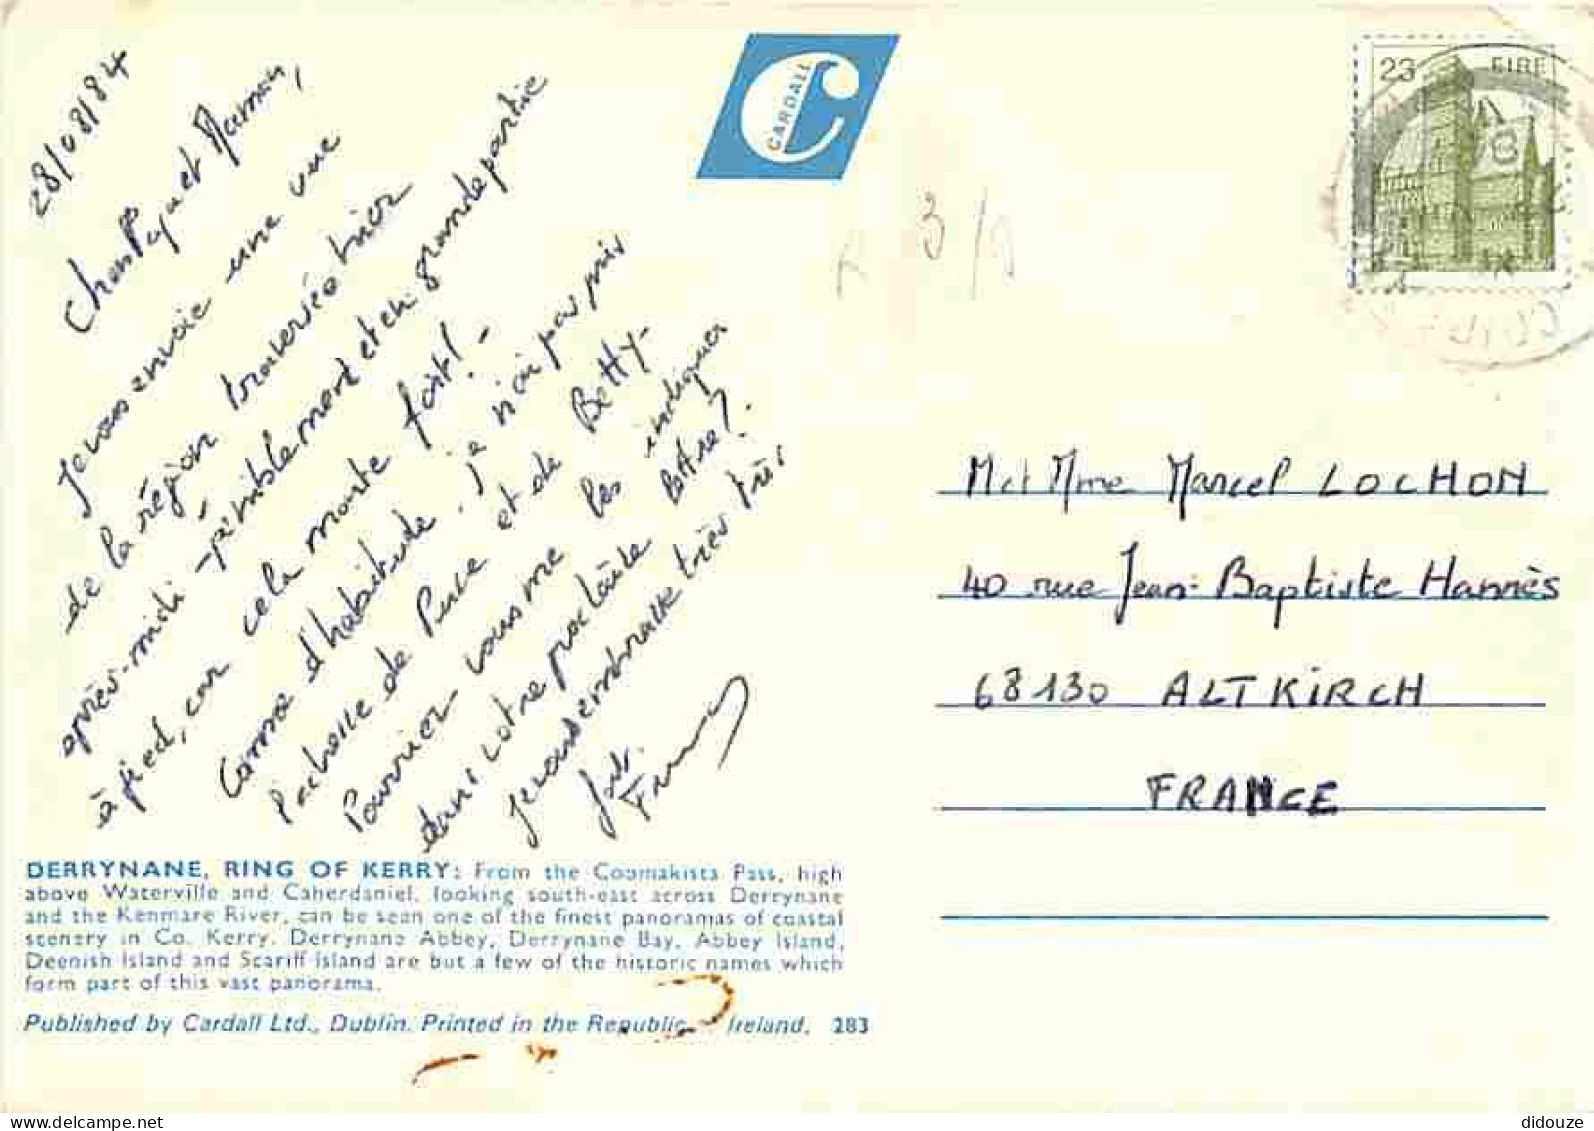 28/08/84
Chers Papa et Maman,
Je vous envoie une vue
de la région traversée hier
après-midi - péniblement et en grande partie
à pied, car cela monte fort! -
Comme d'habitude, je n'ai pas pris
l'adresse de et de Betty -
Pourriez-vous me les indiquer
dans votre prochaine lettre?
Je vous embrasse très très
fort.
CARDALL
23 EIRE
3/
M et Mme Marcel LOCHON
40 rue Jean-Baptiste Hannès
68130 ALTKIRCH
FRANCE
DERRYNANE, RING OF KERRY: From the Coomakista Pass, high
above Waterville and Caherdaniel, looking south-east across Derrynane
and the Kenmare River, can be seen one of the finest panoramas of coastal
scenery in Co. Kerry. Derrynane Abbey, Derrynane Bay, Abbey Island,
Deenish Island and Scariff Island are but a few of the historic names which
form part of this vast panorama.
Published by Cardall Ltd., Dublin. Printed in the Republic Ireland. 283
www.delcampe.net
didouze